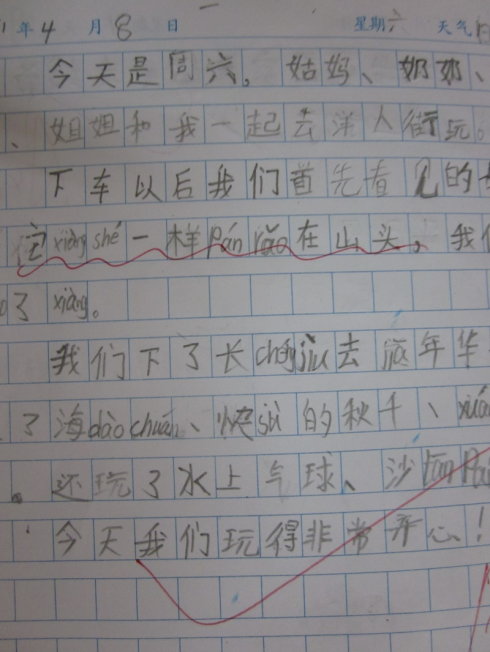 年4月8日 星期六 天气
今天是周六，姑妈、奶奶、
、姐姐和我一起去洋人街玩。
下车以后我们首先看见的
它xiàng shé一样pán rào在山头，我们
了xiàng。
我们下了长chéng jiù去 年华
了海dào chuán、快sù的秋千、
。还玩了水上气球、沙
今天我们玩得非常开心！